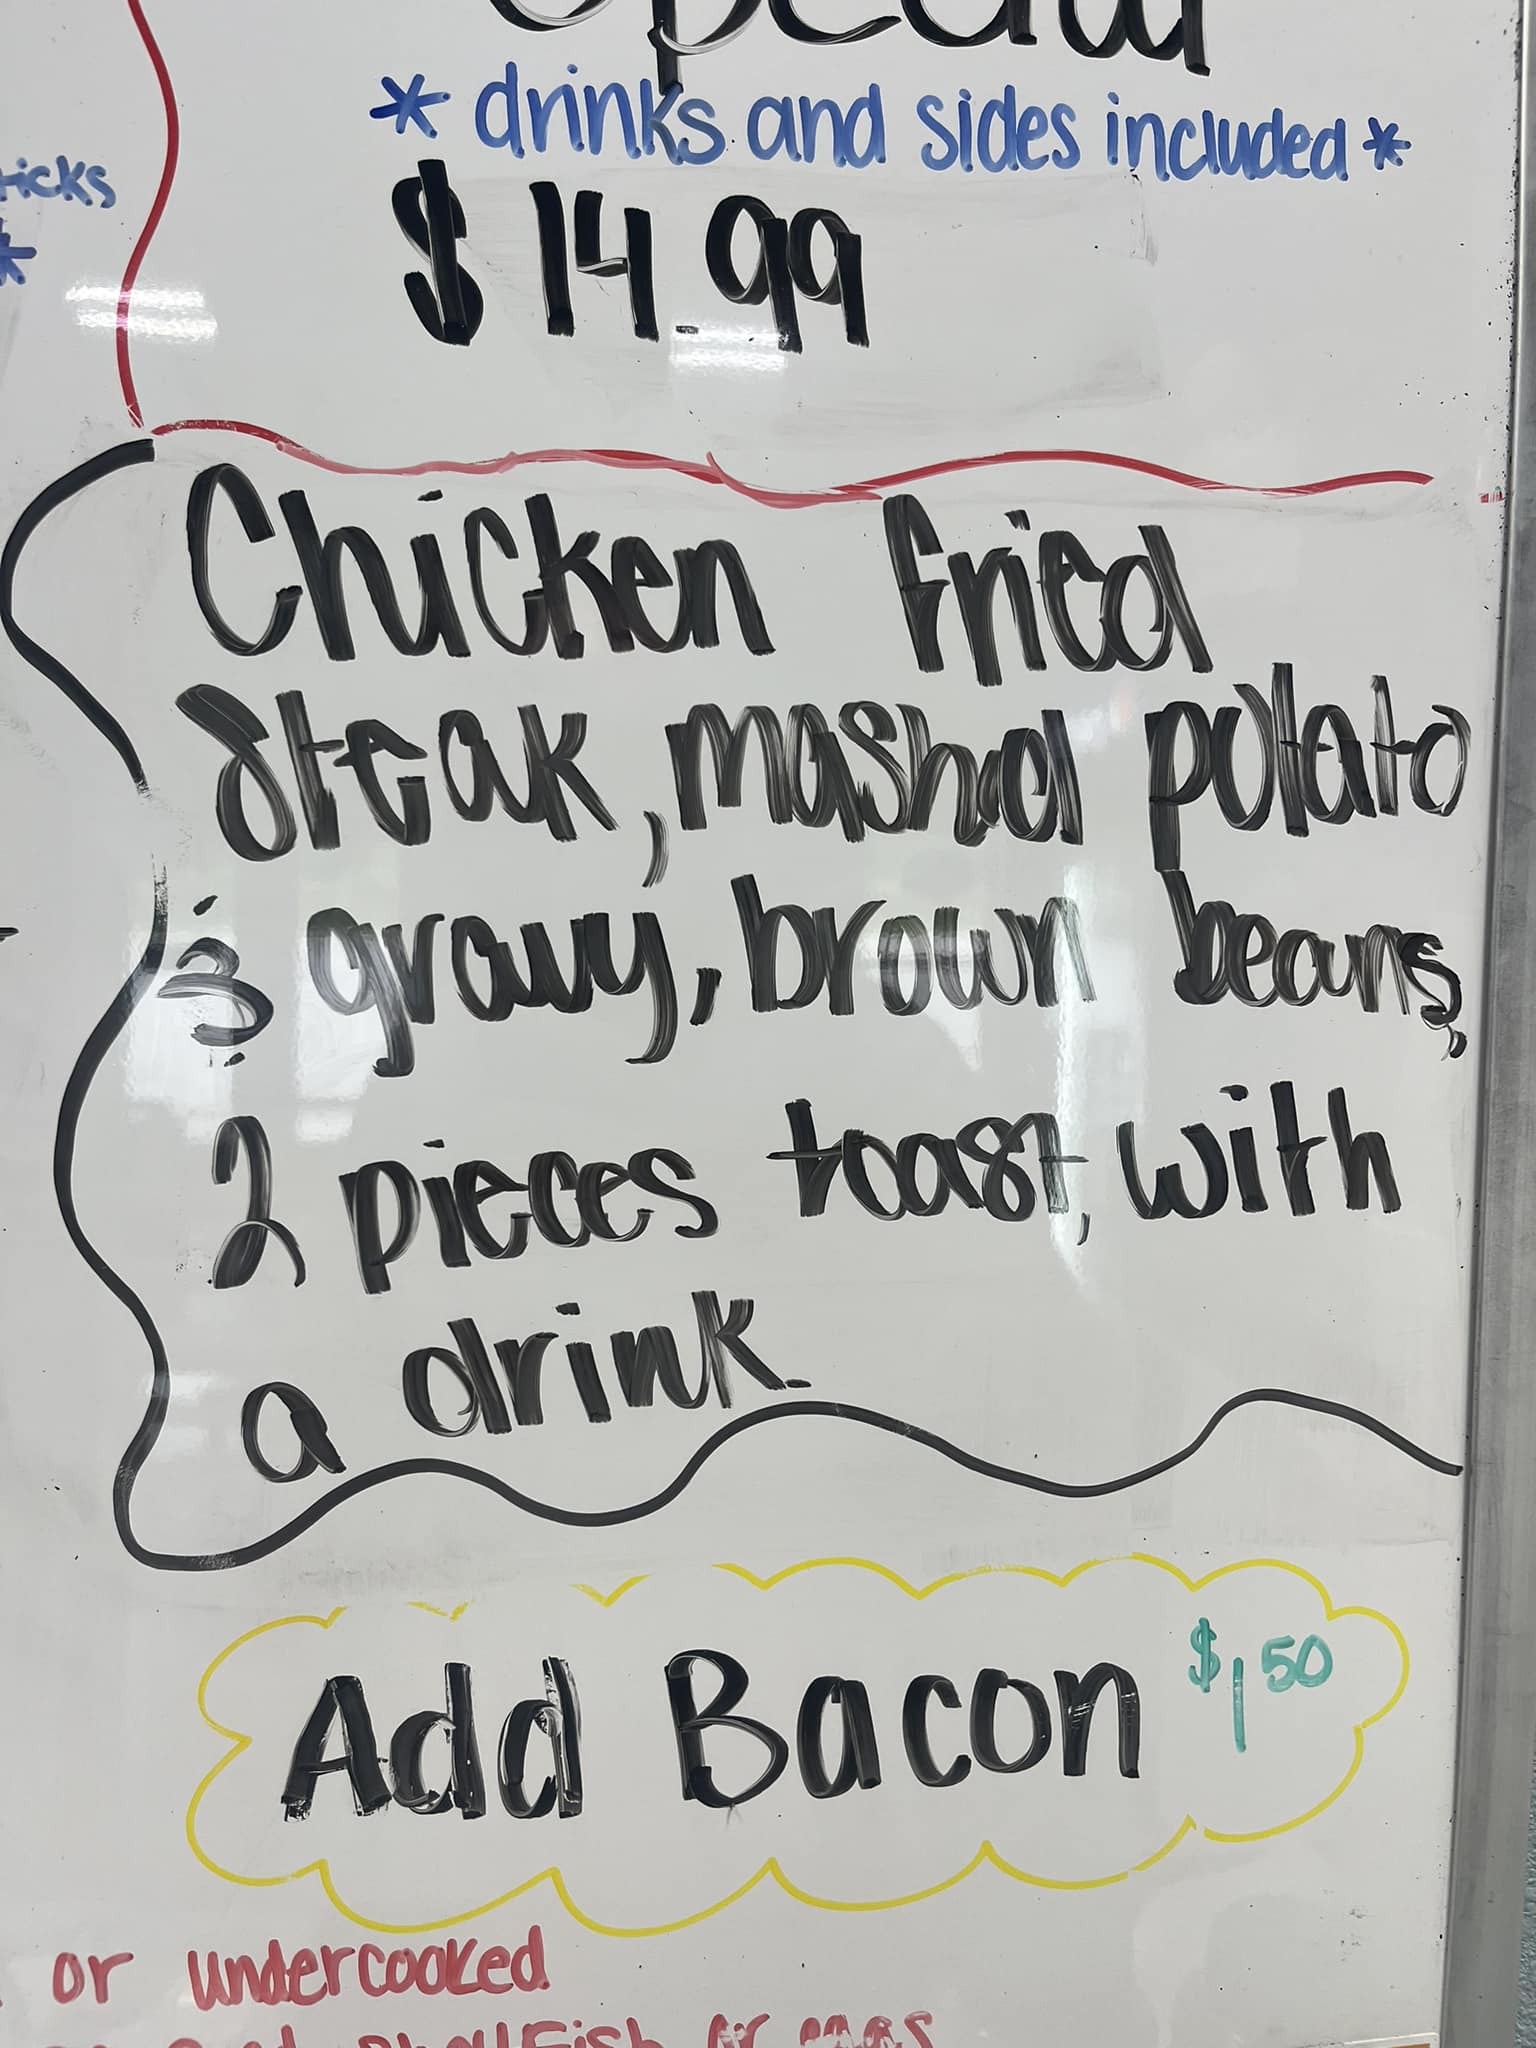 Special
* drinks and sides included *
$14.99
ticks
*
Chicken fried
Steak, mashed potato
& gravy, brown beans,
2 pieces toast, with
a drink.
Add Bacon $1.50
or undercooked
shellfish or eggs